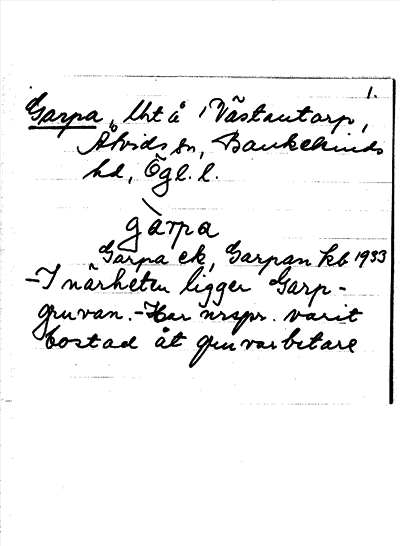 1.
Garpa, lht å Västantorp,
Åtvids sn, Bankekinds
hd, Ögl. l.
gàrpa
Garpa ek, Garpan kb 1933
- I närheten ligger Garp-
gruvan. - Har urspr. varit
bostad åt gruvarbetare